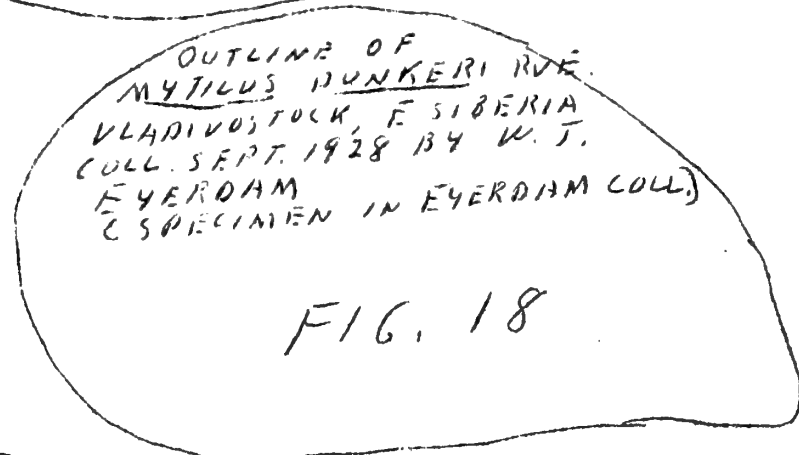 OUTLINE OF
MYTILUS DUNKERI RVE.
VLADIVOSTOCK, E SIBERIA
COLL. SEPT. 1928 BY W. J.
EYERDAM
(SPECIMEN IN EYERDAM COLL.)
FIG. 18